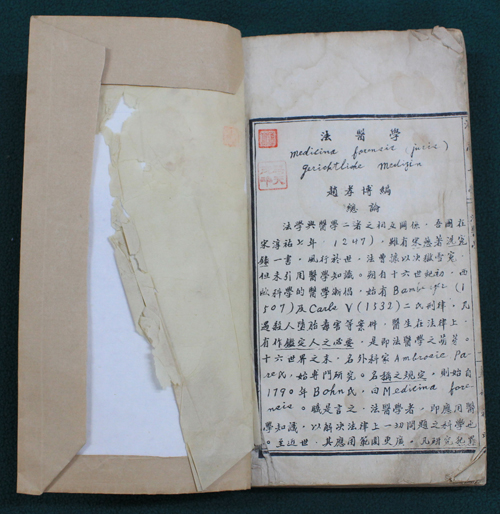 法醫學
medicina forensis (juris)
gerichtliche medizin
趙孝博編
總論
法學與醫學二者之相互關係，吾國在
宋淳祐七年，1247)，雖有宋慈著洗冤
錄一書，風行於世，法曹據以決獄雪冤，
但未引用醫學知識。朔自十六世紀初，西
歐科學的醫學漸昌，始有Bamberge (1
507)及Carls V (1532)二氏刑律，凡
遇殺人墮胎毒害等案件，醫生在法律上
有作鑑定人之必要，是即法醫學之萌芽。
十六世界之末，名外科家Ambrosie Pa
re氏，始專門研究。名稱之規定，則始自
1790年Bohn氏，曰Medicina fore-
nsis。職是言之，法醫學者，即應用醫
學知識，以解決法律上一切問題之科學也
。至近世，其應用範圍更廣，凡研究犯罪